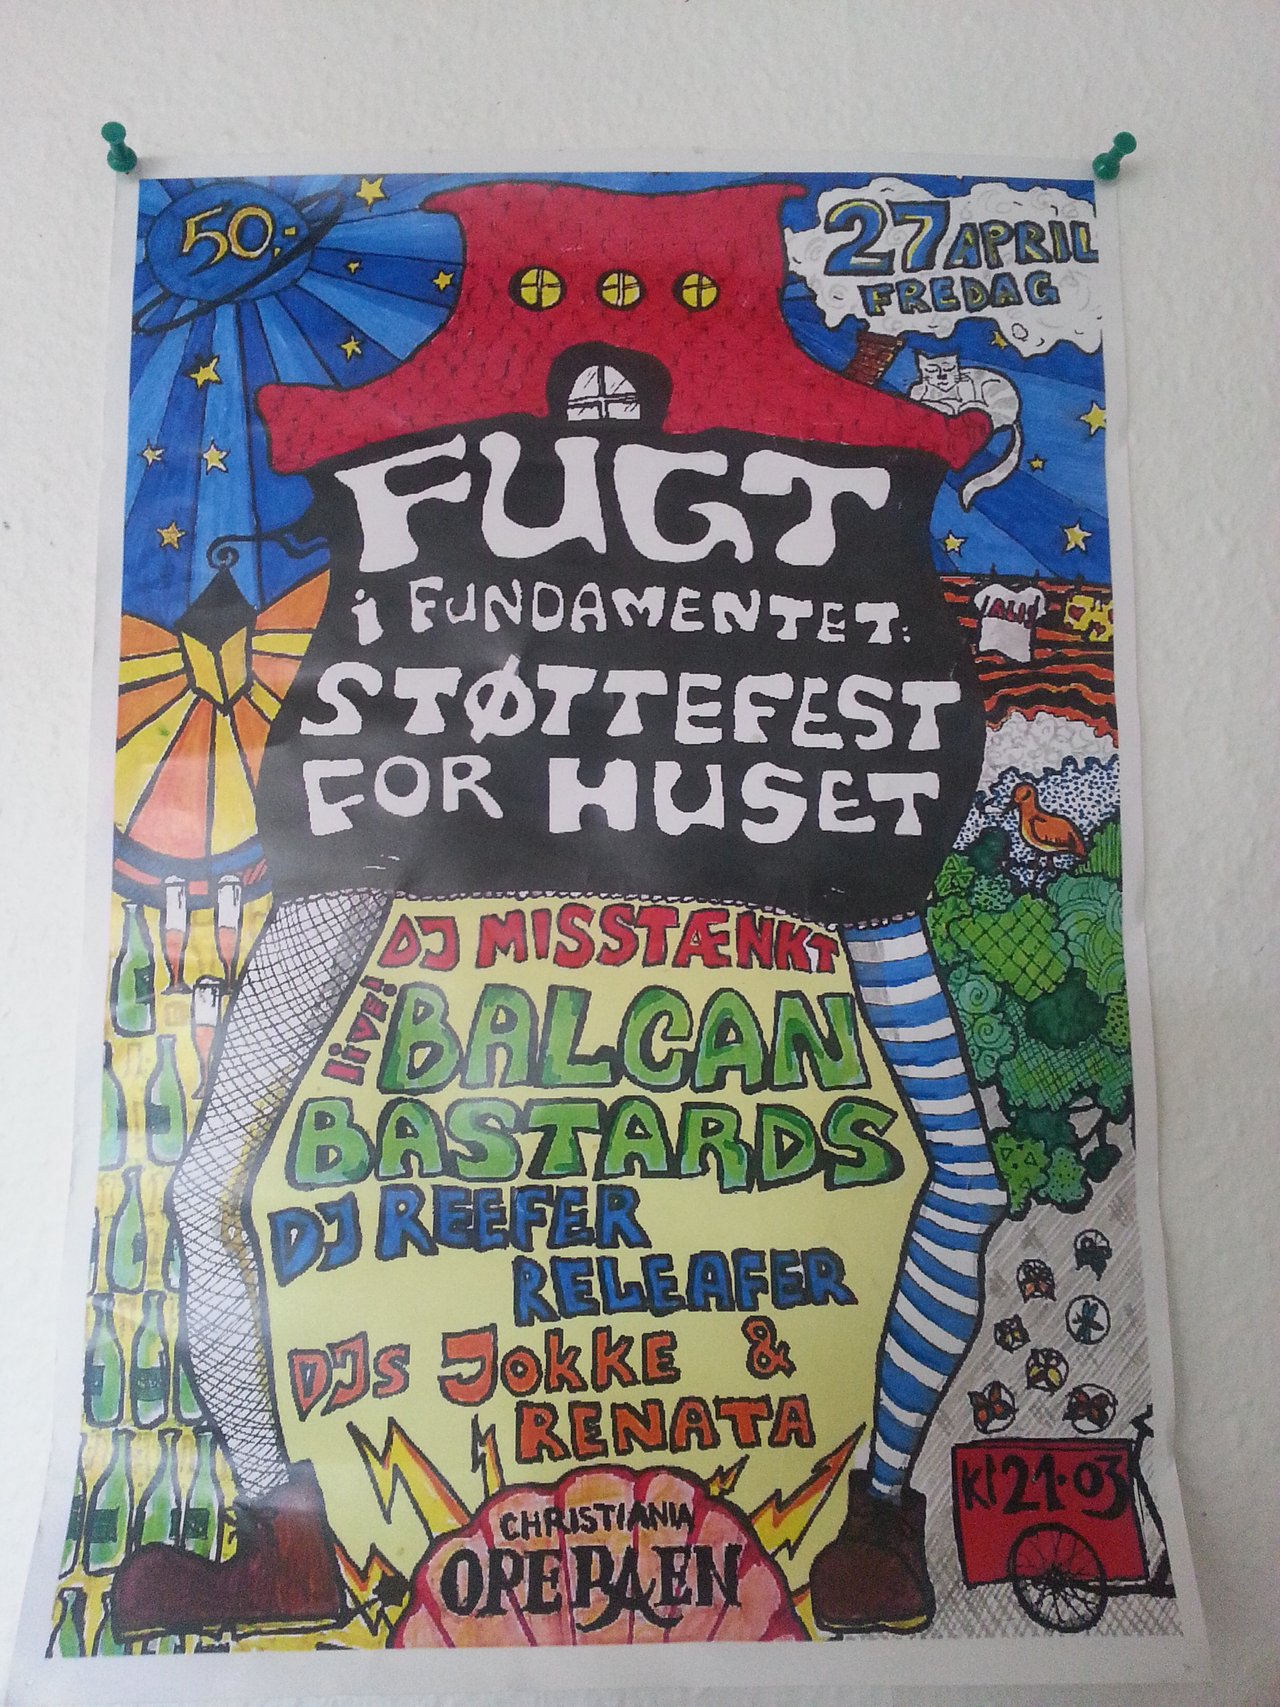 50,-
27 APRIL
FREDAG
FUGT
i FUNDAMENTET:
STØTTEFEST
FOR HUSET
DJ MISSTÆNKT
live!
BALCAN
BASTARDS
DJ REEFER
RELEAFER
DJs JOKKE &
RENATA
kl 21-03
CHRISTIANIA
OPERAEN